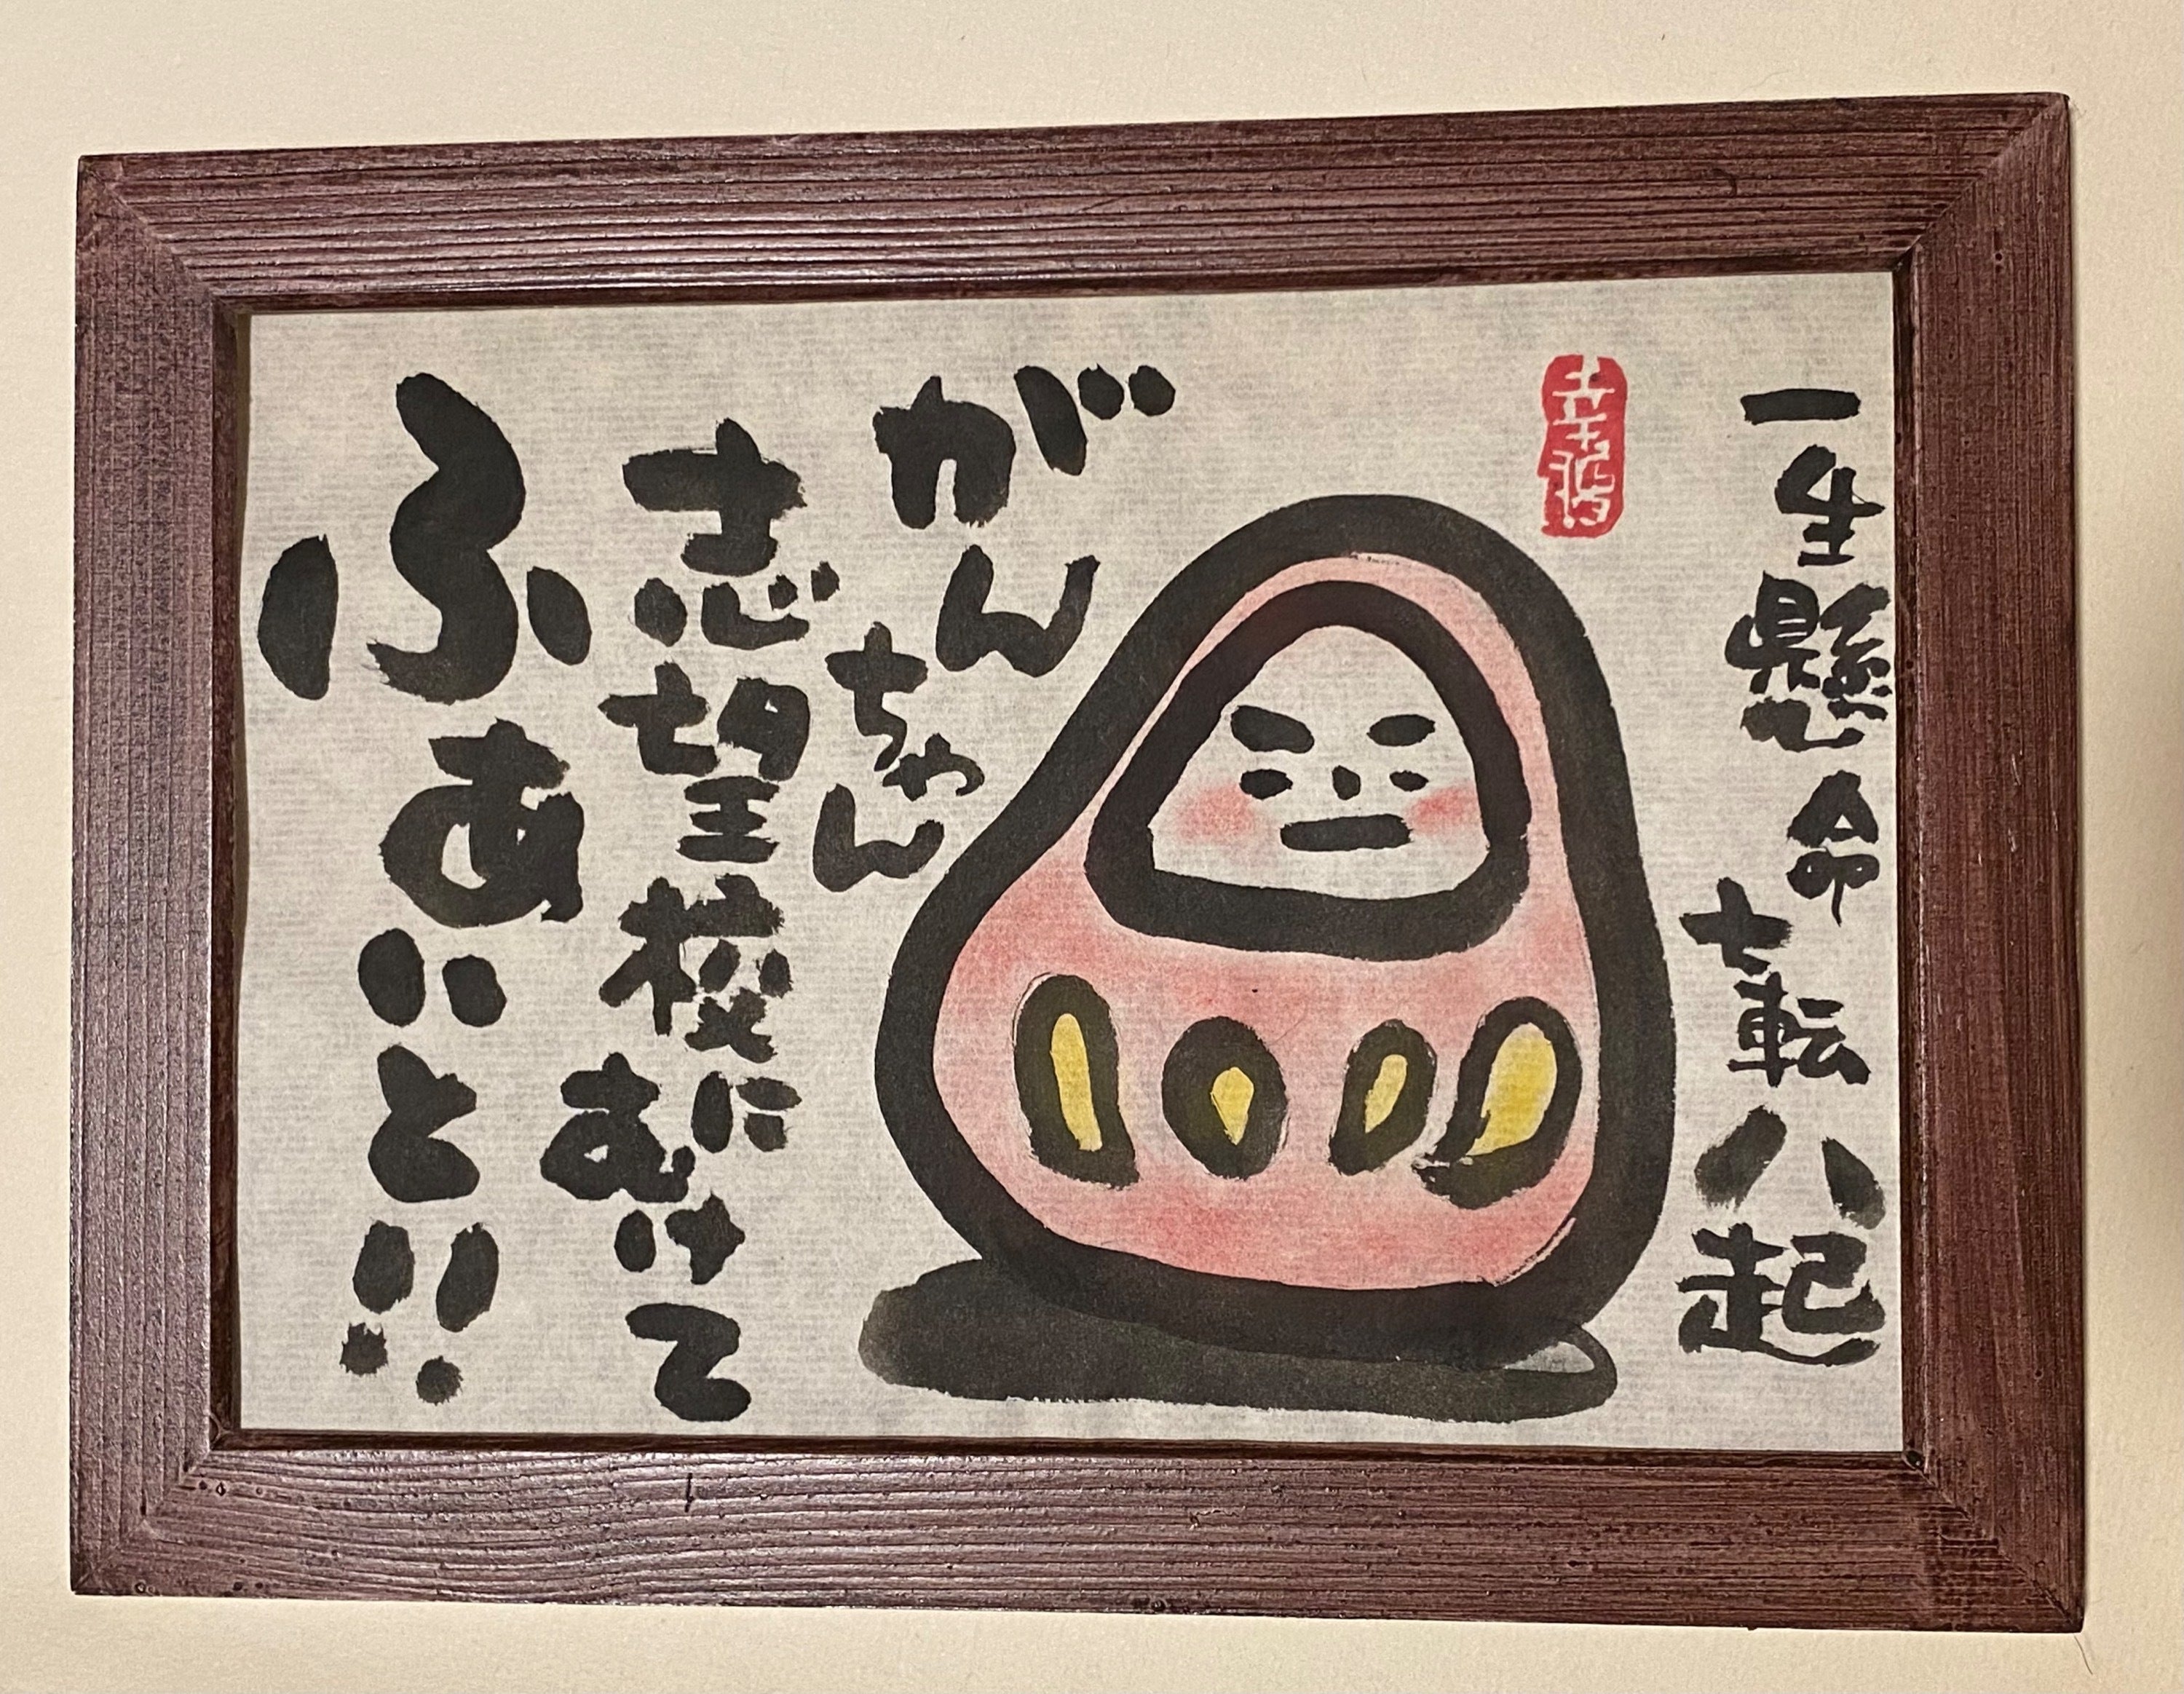 一生懸命
七転八起
幸福
がん
ちゃん
志望校に
むけて
ふぁいと!!